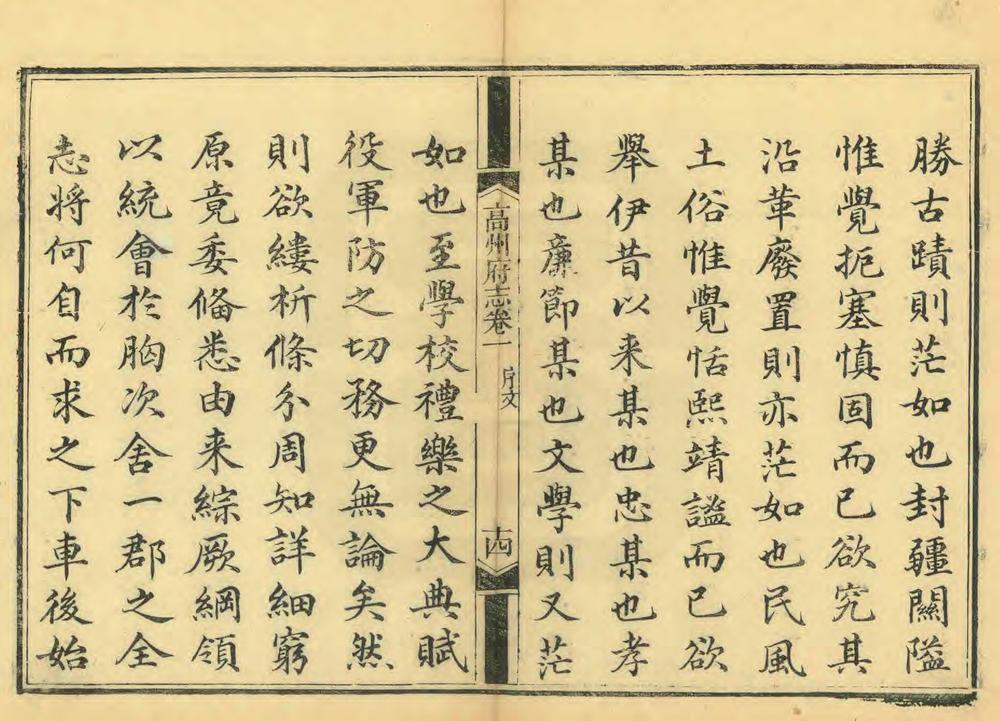 勝古蹟則茫如也封疆關隘
惟覺扼塞慎固而已欲究其
沿革廢置則亦茫如也民風
土俗惟覺恬熙靖謐而已欲
舉伊昔以来某也忠某也孝
某也廉節某也文學則又茫
高州府志卷一
序文
十四
如也至學校禮樂之大典賦
役軍防之切務更無論矣然
則欲縷析條分周知詳細窮
原竟委偹悉由来綜厥綱領
以統會於胸次舍一郡之全
志將何自而求之下車後始